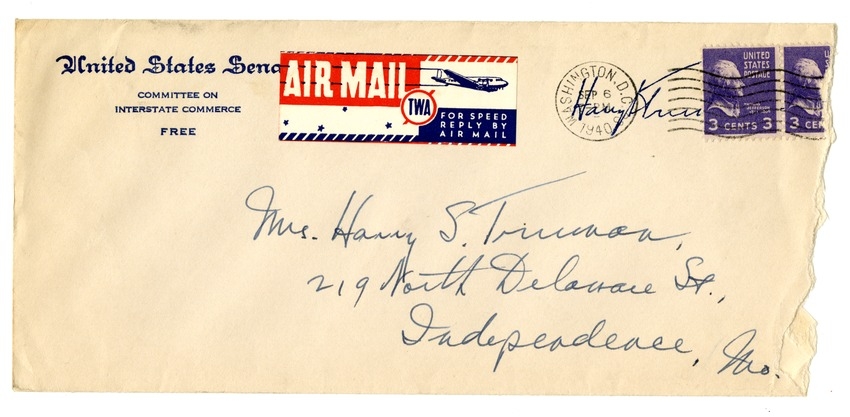 United States Sena
COMMITTEE ON
INTERSTATE COMMERCE
FREE
AIR MAIL
TWA
FOR SPEED
REPLY BY
AIR MAIL
WASHINGTON, D.C.
SEP 6
1940
Harry S Trum
UNITED
STATES
POSTAGE
3 CENTS 3
U
S
3 CEN
Mrs. Harry S. Truman,
219 North Delaware St.,
Independence, Mo.